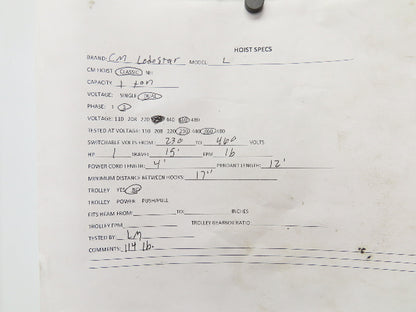 HOIST SPECS
BRAND: CM Lodestar MODEL: L
CM HOIST CLASSIC NH
CAPACITY 1 ton
VOLTAGE: SINGLE DUAL
PHASE: 1 3
VOLTAGE: 110 208 220 440 460 480
TESTED AT VOLTAGE: 110 208 220 230 440 460 480
SWITCHABLE VOLTS FROM: 230 TO 460 VOLTS
HP 1 TRAVEL: 15' FPM 16
POWER CORD LENGTH: 4' PENDANT LENGTH: 12'
MINIMUM DISTANCE BETWEEN HOOKS: 17"
TROLLEY YES NO
TROLLEY POWER PUSH/PULL
FITS BEAM FROM: TO: INCHES
TROLLEY FPM TROLLEY GEARBOX RATIO
TESTED BY: LM
COMMENTS: 114 lb.